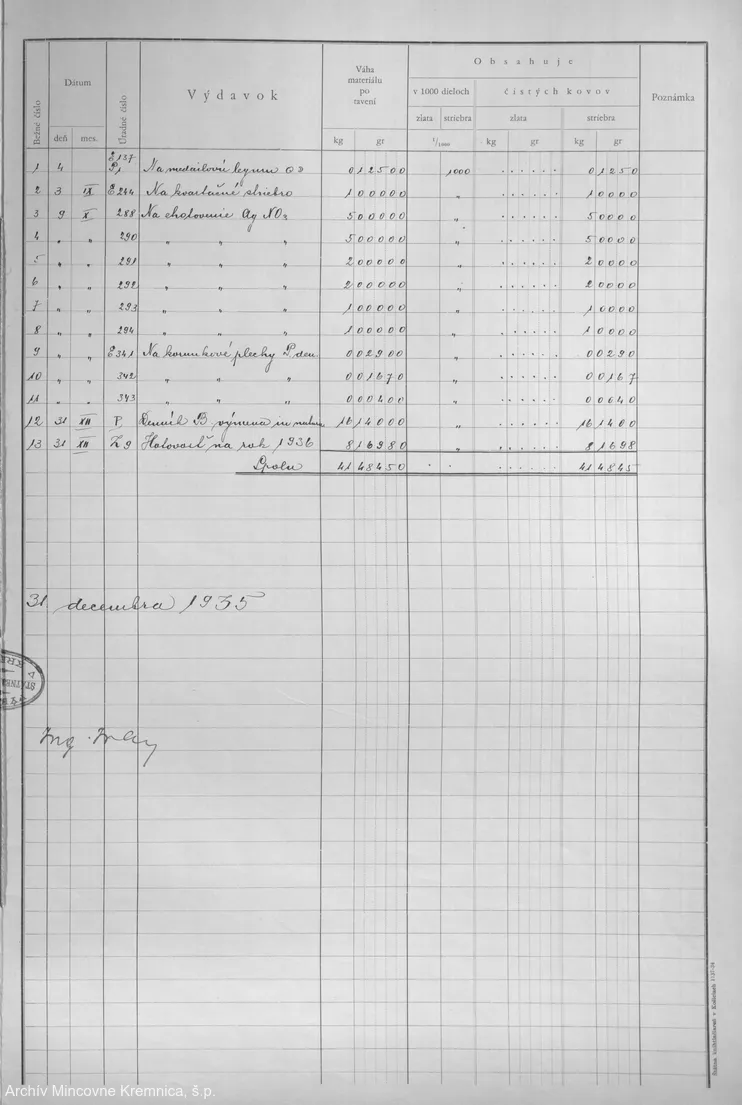 Bežné číslo
Dátum
deň mes.
Úradné číslo
Výdavok
Váha materiálu po tavení
kg gr
Obsahuje
v 1000 dieloch
zlata striebra
1/1000
čistých kovov
zlata
kg gr
striebra
kg gr
Poznámka
1 4 E137 P1 Na medailovú 012500 1000 . . . . . . 01250
2 3 IX E244 Na striebro 100000 „ . . . . . . 10000
3 9 X 288 Na zhotovenie Ag NO3 500000 „ . . . . . . 50000
4 „ „ 290 „ „ „ 500000 „ . . . . . . 50000
5 „ „ 291 „ „ „ 200000 „ . . . . . . 20000
6 „ „ 292 „ „ „ 200000 „ . . . . . . 20000
7 „ „ 293 „ „ „ 100000 „ . . . . . . 10000
8 „ „ 294 „ „ „ 100000 „ . . . . . . 10000
9 „ „ E341 Na korunkové plechy P. den. 002900 „ . . . . . . 00290
10 „ „ 342 „ „ „ 001670 „ . . . . . . 00167
11 „ „ 343 „ „ „ 000400 „ . . . . . . 00040
12 31 XII P. Denník B výmena in natura 1614000 „ . . . . . . 161400
13 31 XII Z9 Hotovosť na rok 1936 816980 „ . . . . . . 81698
Spolu 4148450 . . . . . . . . 414845
31. decembra 1935
Ing.
Archív Mincovne Kremnica, š.p.